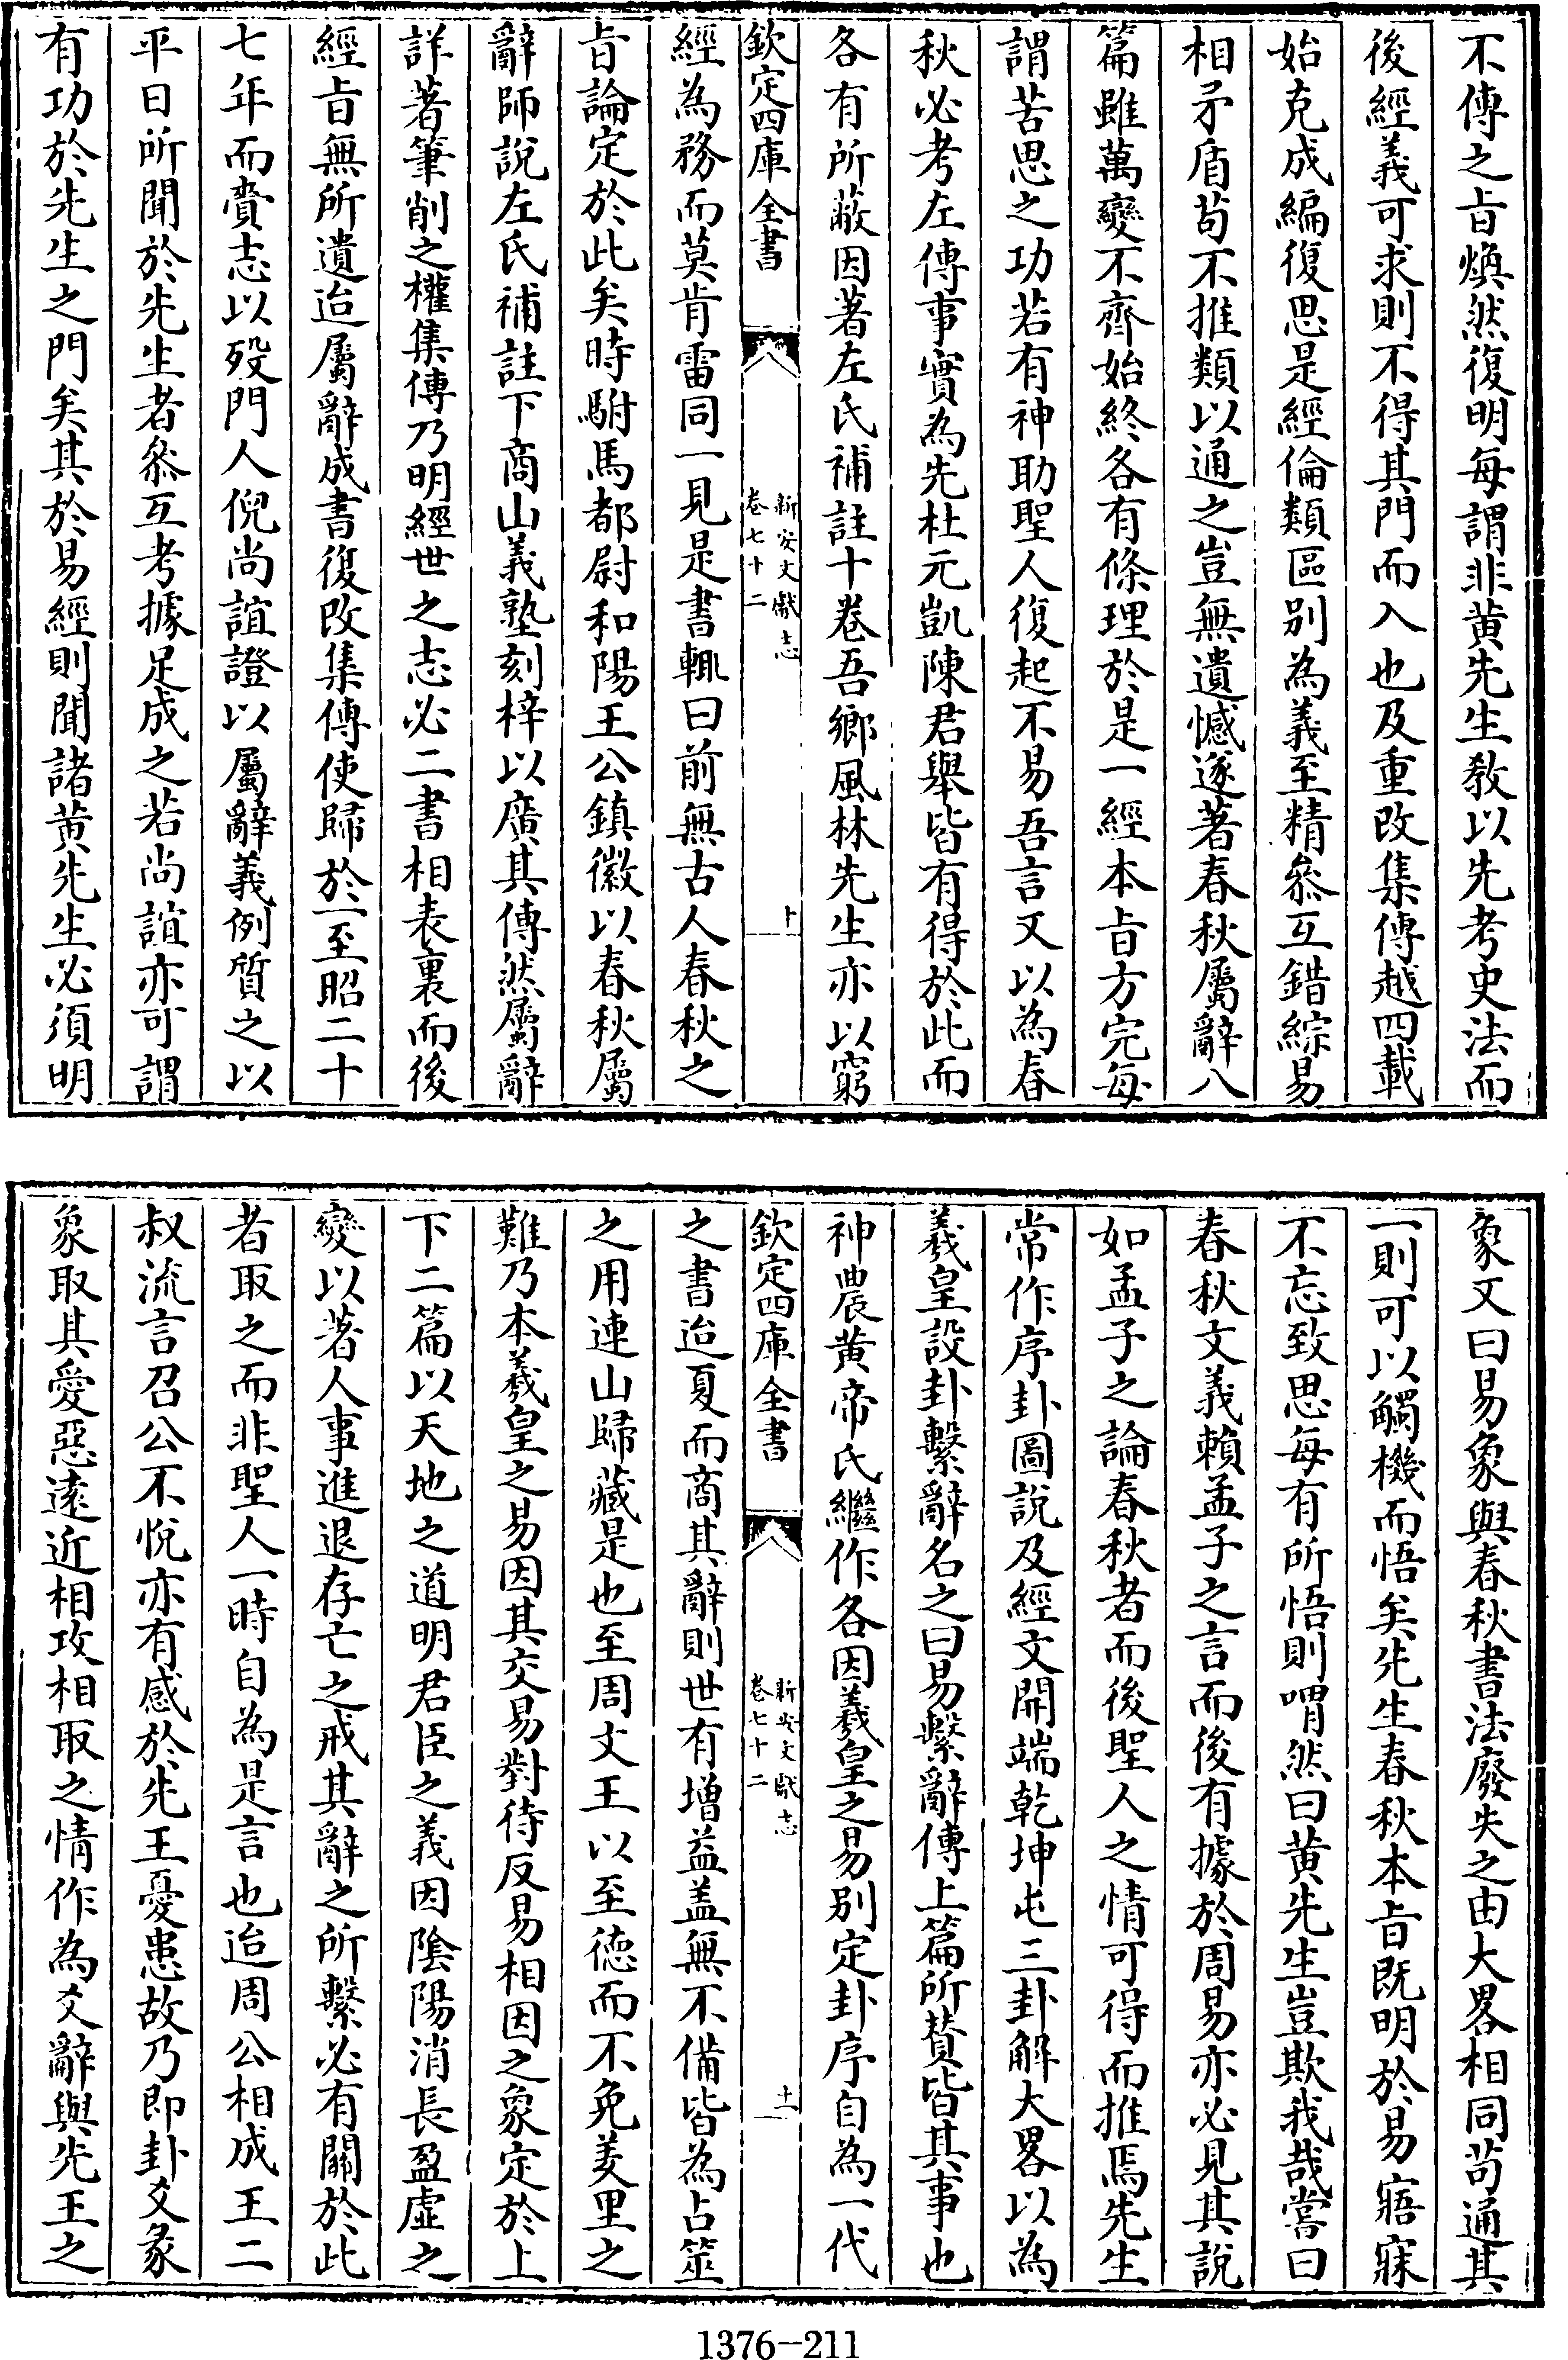 不傳之旨煥然復明每謂非黄先生教以先考史法而
後經義可求則不得其門而入也及重改集傳越四載
始克成編復思是經倫類區别為義至精叅互錯綜易
相矛盾苟不推類以通之豈無遺憾遂著春秋屬辭八
篇雖萬變不齊始終各有條理於是一經本旨方完每
謂苦思之功若有神助聖人復起不易吾言又以為春
秋必考左傳事實為先杜元凱陳君舉皆有得於此而
各有所蔽因著左氏補註十卷吾鄉風林先生亦以窮
欽定四庫全書
新安文獻志
卷七十二
十
經為務而莫肯雷同一見是書輒曰前無古人春秋之
旨論定於此矣時駙馬都尉和陽王公鎮徽以春秋屬
辭師說左氏補註下商山義塾刻梓以廣其傳然屬辭
詳著筆削之權集傳乃明經世之志必二書相表裏而後
經旨無所遺迨屬辭成書復改集傳使歸於一至昭二十
七年而賫志以歿門人倪尚誼證以屬辭義例質之以
平日所聞於先生者叅互考據足成之若尚誼亦可謂
有功於先生之門矣其於易經則聞諸黄先生必須明
象又曰易象與春秋書法廢失之由大畧相同苟通其
一則可以觸機而悟矣先生春秋本旨既明於易寤寐
不忘致思每有所悟則喟然曰黄先生豈欺我哉嘗曰
春秋文義頼孟子之言而後有據於周易亦必見其說
如孟子之論春秋者而後聖人之情可得而推焉先生
常作序卦圖說及經文開端乾坤屯三卦解大畧以為
羲皇設卦繫辭名之曰易繫辭傳上篇所賛皆其事也
神農黄帝氏繼作各因羲皇之易别定卦序自為一代
欽定四庫全書
新安文獻志
卷七十二
十一
之書迨夏而商其辭則世有增益盖無不備皆為占筮
之用連山歸藏是也至周文王以至德而不免羑里之
難乃本羲皇之易因其交易對待反易相因之象定於上
下二篇以天地之道明君臣之義因隂陽消長盈虛之
變以著人事進退存亡之戒其辭之所繫必有關於此
者取之而非聖人一時自為是言也迨周公相成王二
叔流言召公不悅亦有感於先王憂患故乃即卦爻彖
象取其愛惡遠近相攻相取之情作為爻辭與先王之
1376-211